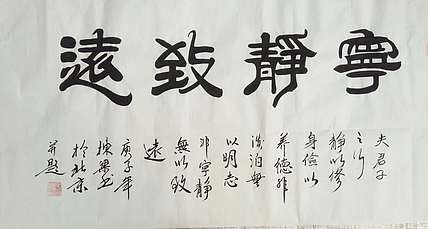 寧靜致遠
夫君子
之行
靜以修
身儉以
養德非
淡泊無
以明志
非寧靜
無以致
遠
庚子年
於北京
并題